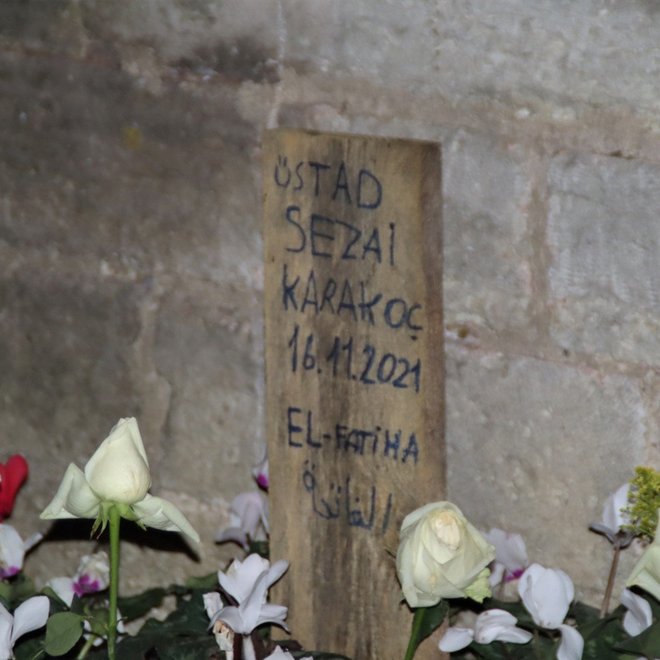 ÜSTAD
SEZAİ
KARAKOÇ
16.11.2021
EL-FATİHA
الفاتحة